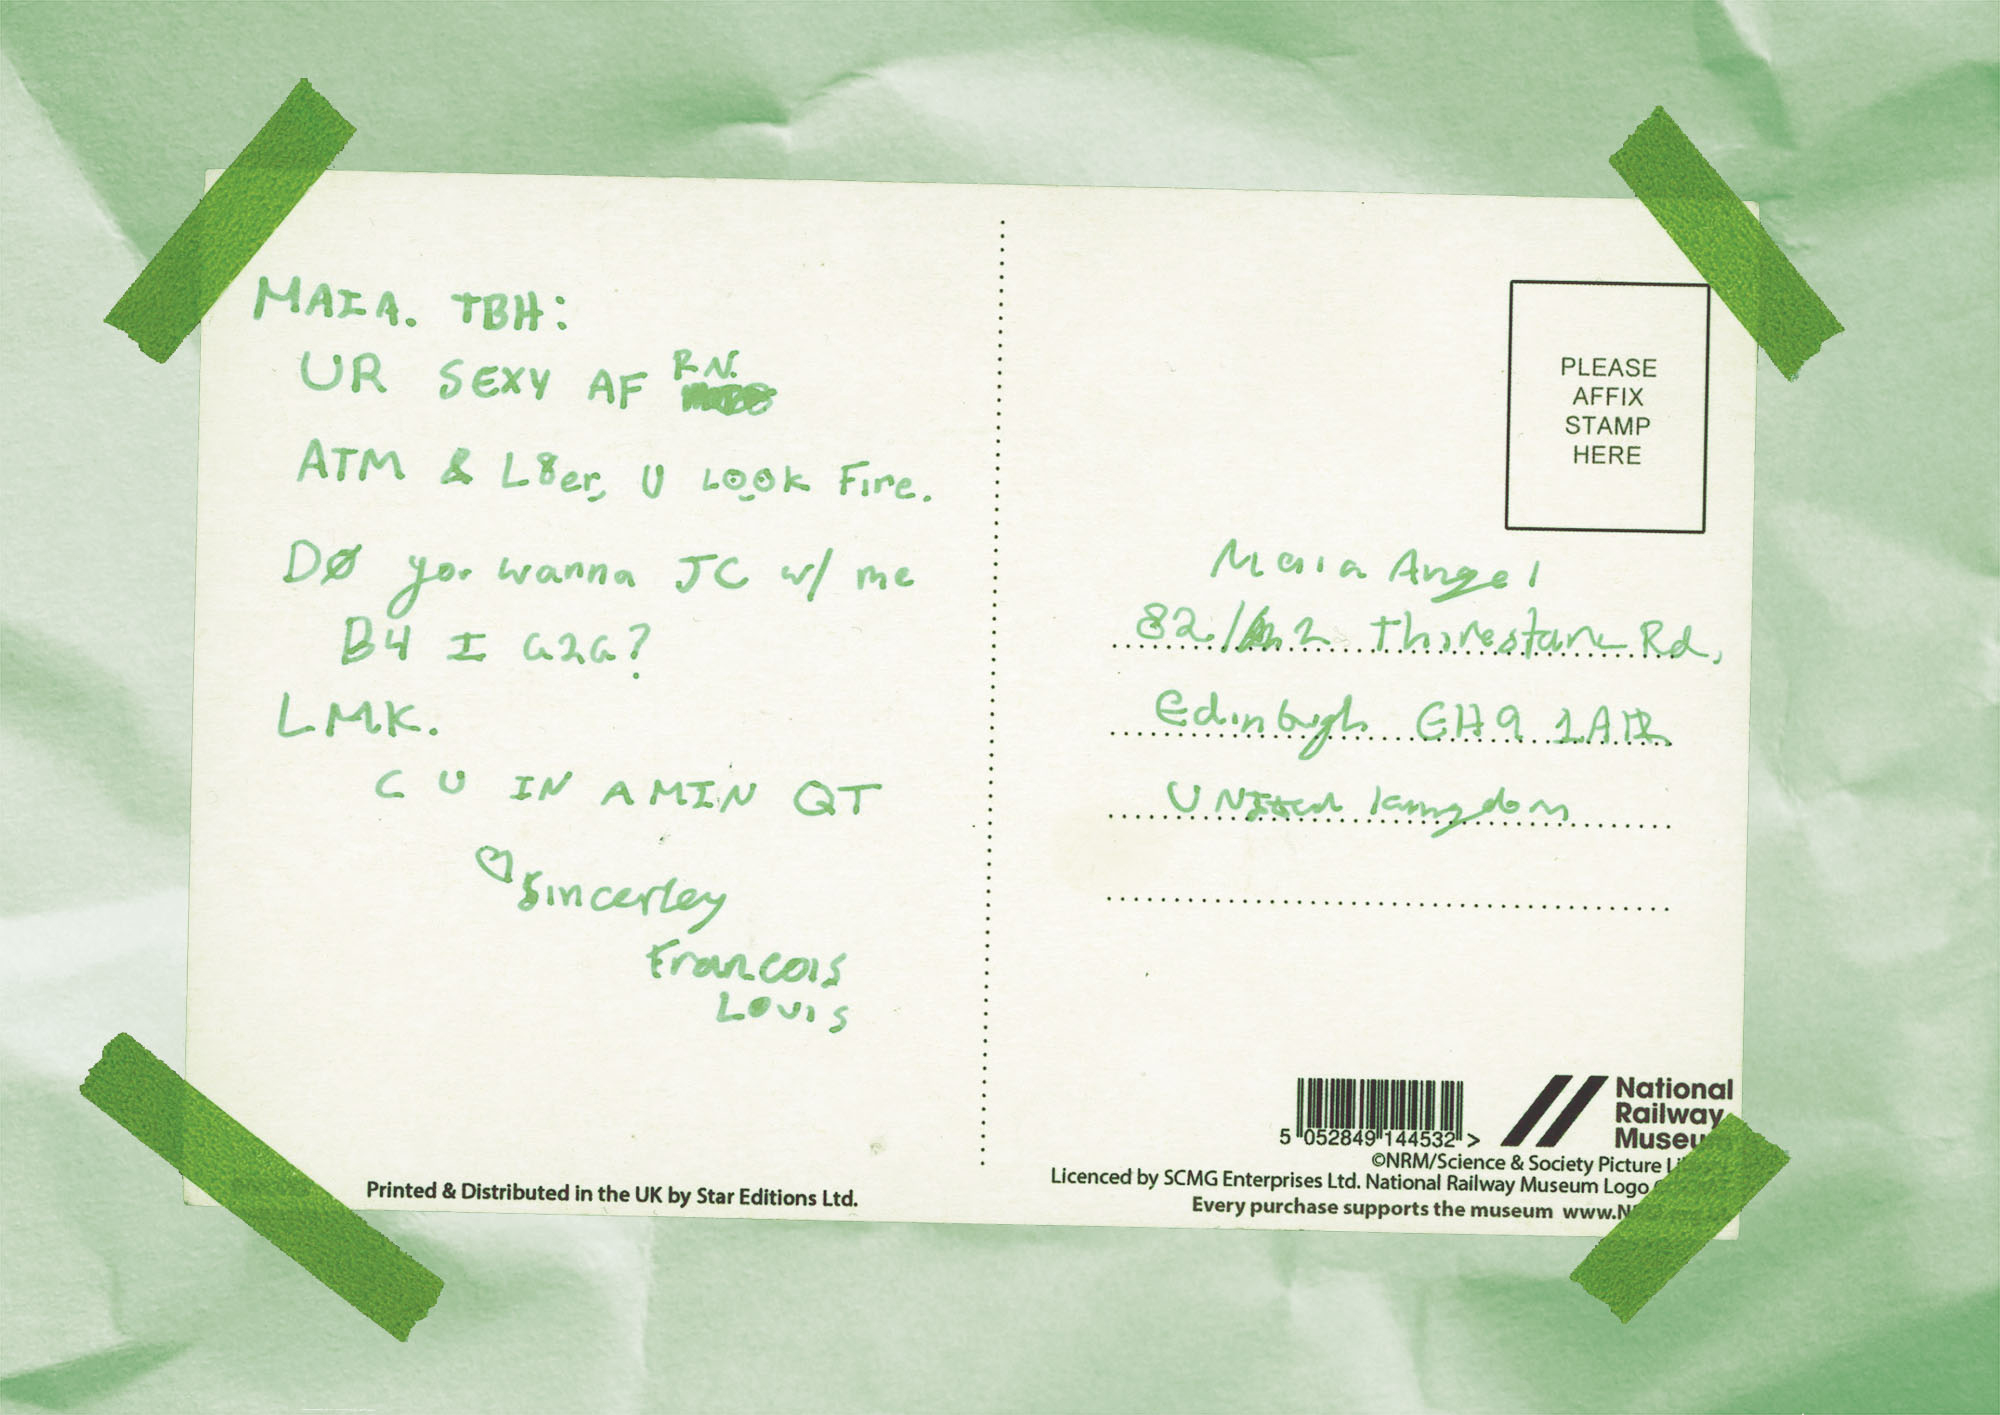 MAIA. TBH:
UR SEXY AF RN.
ATM & L8er, U LOOK Fire.
DO you wanna JC w/ me
B4 I G2G?
LMK.
C U IN A MIN QT
♡ Sincerley
Francois
Louis
PLEASE
AFFIX
STAMP
HERE
Maia Angel
82/2 Thirestane Rd,
Edinburgh EH9 1AR
United Kingdom
5 052849 144532 >
National
Railway
Museu
©NRM/Science & Society Picture Li
Licenced by SCMG Enterprises Ltd. National Railway Museum Logo
Every purchase supports the museum www.N
Printed & Distributed in the UK by Star Editions Ltd.